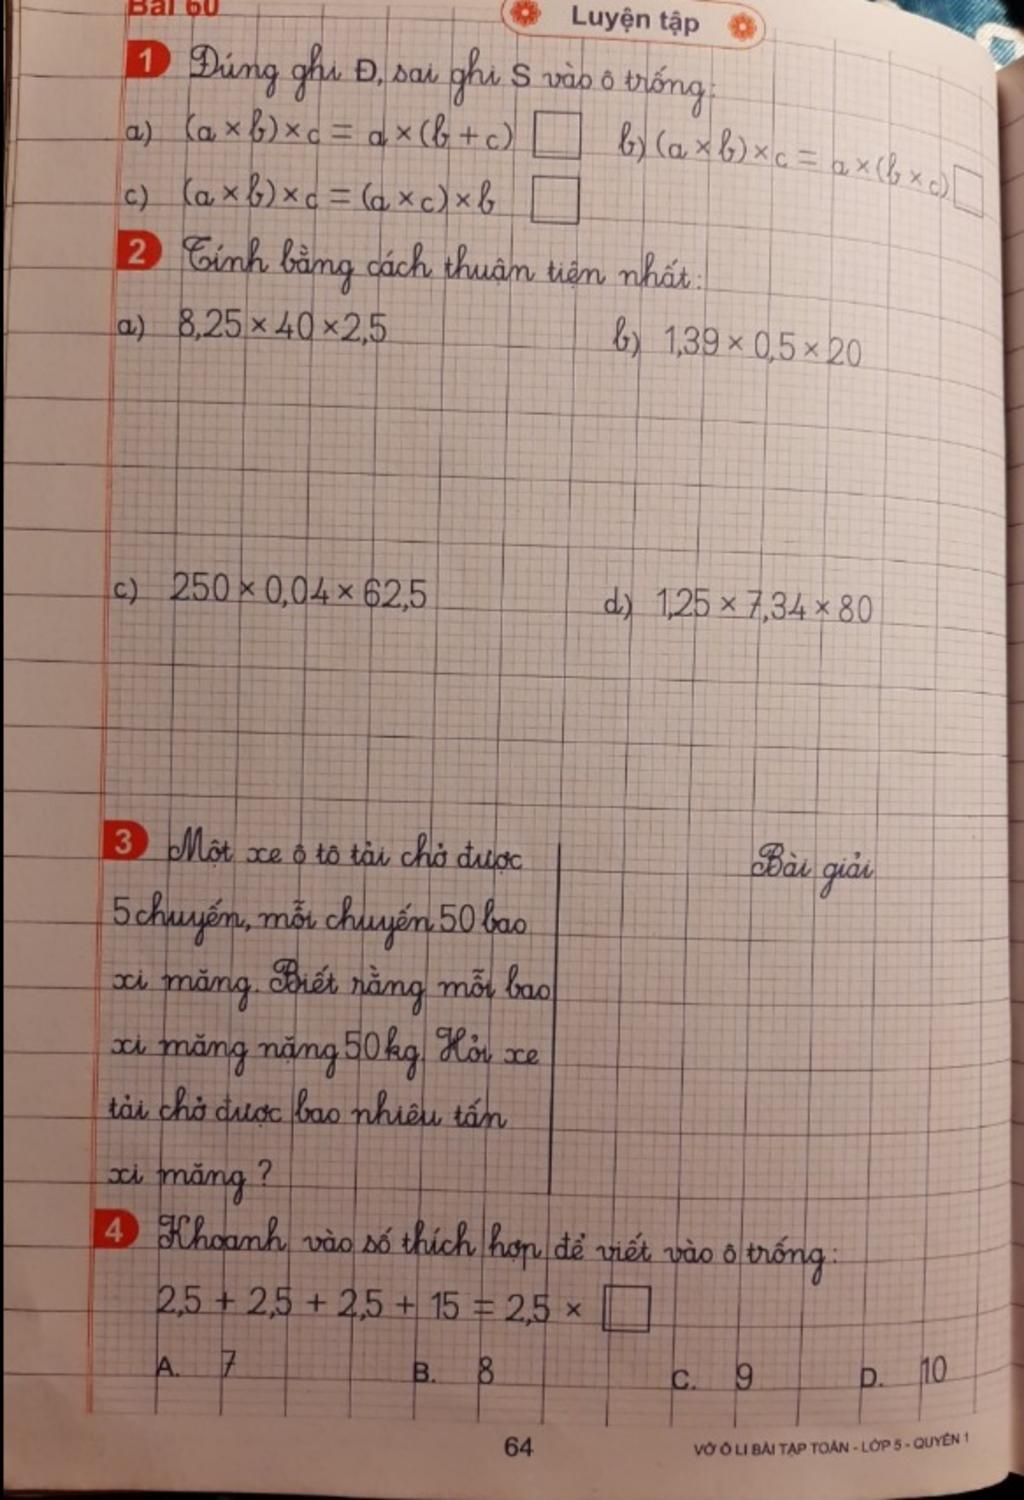 Bài 60
Luyện tập
1 Đúng ghi Đ, sai ghi S vào ô trống:
a) (a × b) × c = a × (b + c) b) (a × b) × c = a × (b × c)
c) (a × b) × c = (a × c) × b
2 Tính bằng cách thuận tiện nhất:
a) 8,25 × 40 × 2,5 b) 1,39 × 0,5 × 20
c) 250 × 0,04 × 62,5 d) 1,25 × 7,34 × 80
3 Một xe ô tô tải chở được
5 chuyến, mỗi chuyến 50 bao
xi măng. Biết rằng mỗi bao
xi măng nặng 50kg. Hỏi xe
tải chở được bao nhiêu tấn
xi măng?
Bài giải
4 Khoanh vào số thích hợp để viết vào ô trống:
2,5 + 2,5 + 2,5 + 15 = 2,5 ×
A. 7 B. 8 C. 9 D. 10
64
VỞ Ô LI BÀI TẬP TOÁN - LỚP 5 - QUYỂN 1